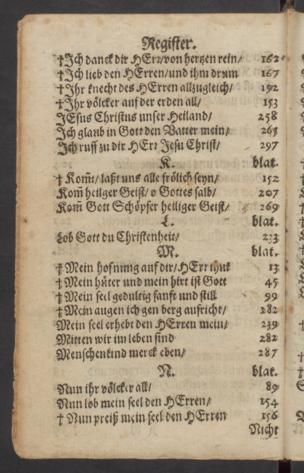 Register.
†Jch danck dir HErr/von hertzen rein/ 162
†Jch lieb den HErren/und ihm drum 167
†Jhr knecht des HErren allzugleich/ 192
†Jhr völcker auf der erden all/ 153
JEsus Christus unser Heiland/ 258
Jch glaub in Gott den Vatter mein/ 265
Jch ruff zu dir HErr Jesu Christ/ 297
K. blat.
†Kom̃/ laßt uns alle frölich seyn/ 152
Kom̃ heilger Geist/ o Gottes salb/ 207
Kom̃ Gott Schöpfer heiliger Geist/ 269
L. blat.
Lob Gott du Christenheit/ 233
M. blat.
†Mein hofnung auf dir/HErr 13
†Mein hüter und mein hirt ist Gott 45
†Mein seel gedultig sanft und still 99
†Mein augen ich gen berg aufricht/ 282
Mein seel erhebt den HErren mein/ 239
Mitten wir im leben sind 282
Menschenkind merck eben/ 287
N. blat.
Nun ihr völcker all/ 89
Nun lob mein seel den HErren/ 154
†Nun preiß mein seel den HErren 156
Nicht